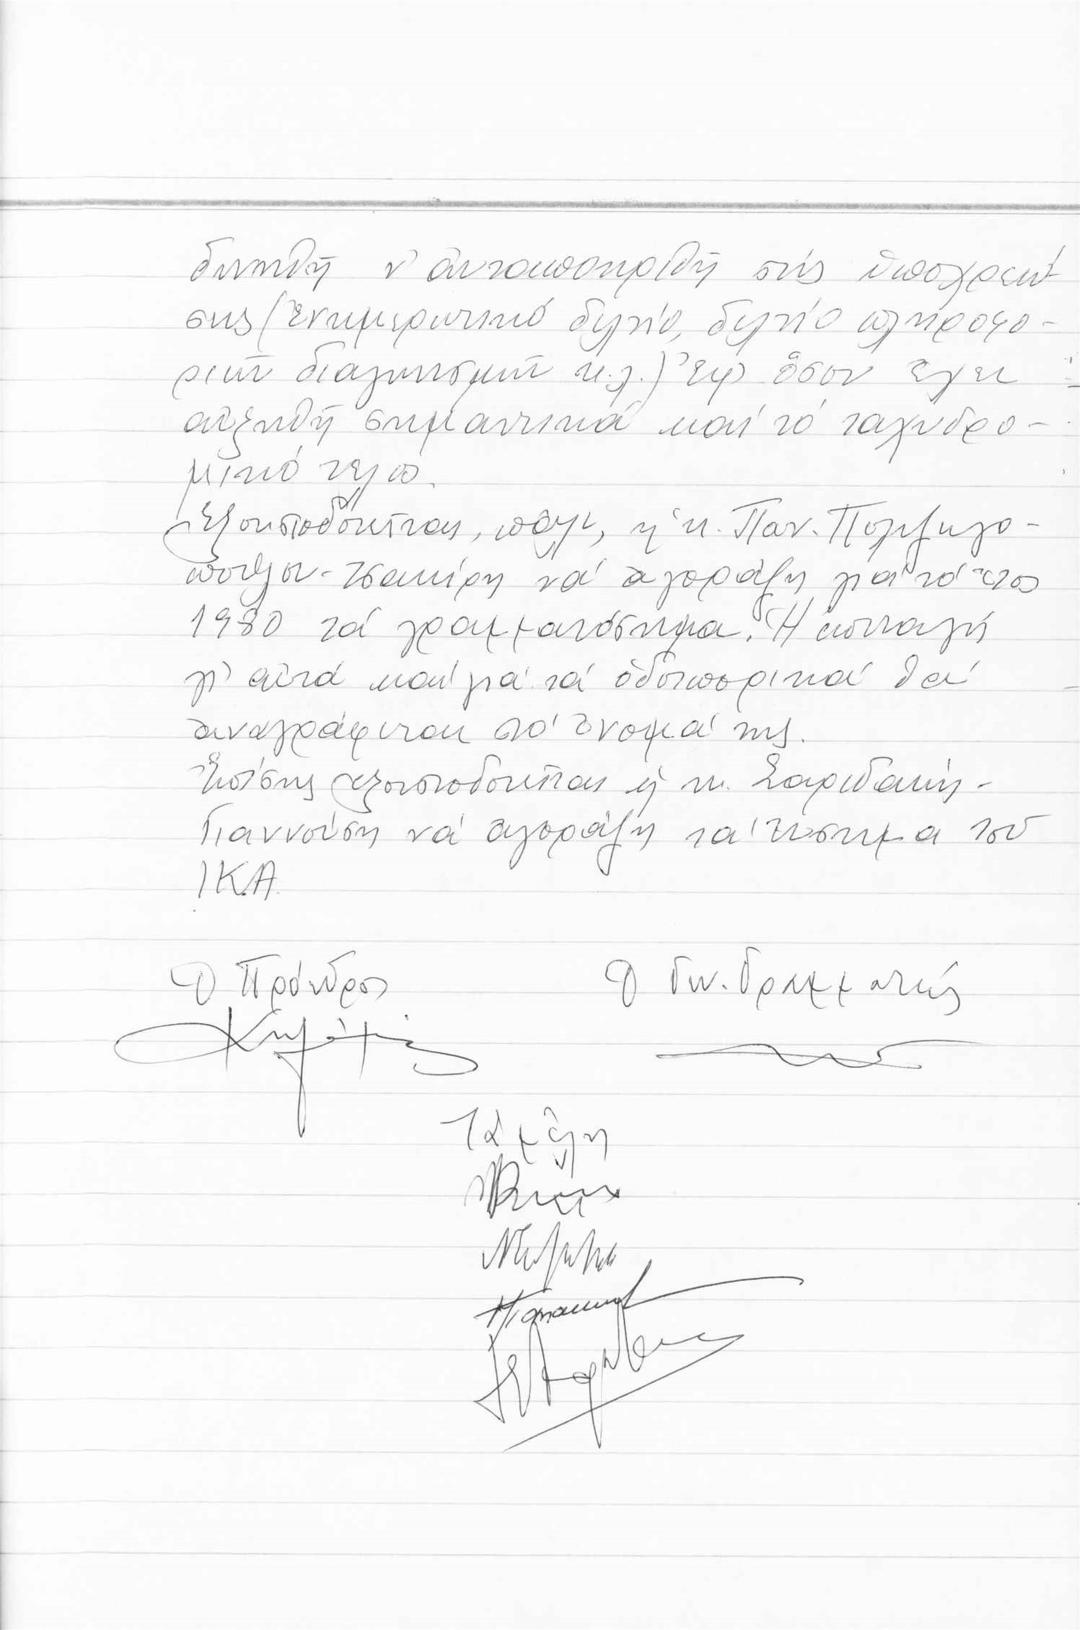 δυνηθῆ ν' ἀνταποκριθῆ στίς ὑποχρεώ-
σεις (Ἐνημερωτικό δελτίο, δελτίο πληροφο-
ριῶν διαγωνισμῶν κ.λ.) Ἐφ' ὅσον ἔχει
αὐξηθῆ σημαντικά καί τό ταχυδρο-
μικό τέλος.
Ἐξουσιοδοτεῖται, πάλι, ἡ κ. Παν. Πολυζηλο-
πούλου-Τσακίρη νά ἀγοράζη γιά τό ἔτος
1980 τά γραμματόσημα. Ἡ ἐπιταγή
γι' αὐτά καί γιά τά ὁδοιπορικά θά
ἀναγράφεται στό ὄνομά της.
Ἐπίσης ἐξουσιοδοτεῖται ἡ κ. Σαριδάκη-
Γιαννούση νά ἀγοράζη τά ἔνσημα τοῦ
ΙΚΑ.
Ὁ Πρόεδρος Ὁ Γεν. Γραμματεύς
Τά μέλη